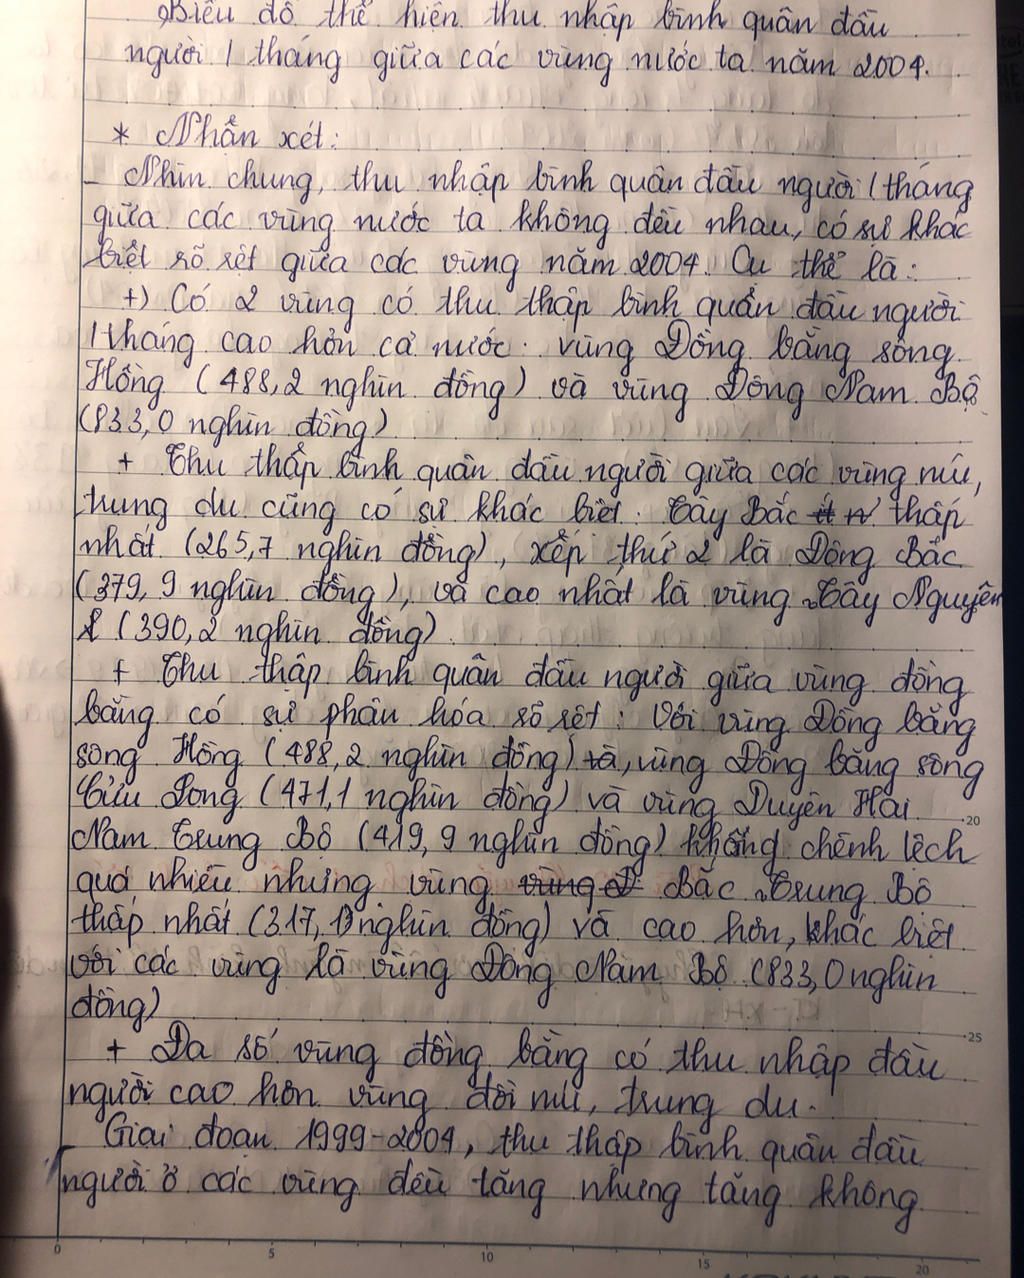 Biểu đồ thể hiện thu nhập bình quân đầu
người / tháng giữa các vùng nước ta năm 2004.
* Nhận xét:
- Nhìn chung, thu nhập bình quân đầu người / tháng
giữa các vùng nước ta không đều nhau, có sự khác
biệt rõ rệt giữa các vùng năm 2004. Cụ thể là:
+) Có 2 vùng có thu thập bình quân đầu người
/tháng cao hơn cả nước: vùng Đồng bằng sông
Hồng (488,2 nghìn đồng) và vùng Đông Nam Bộ
(833,0 nghìn đồng)
+ Thu thập bình quân đầu người giữa các vùng núi,
trung du cũng có sự khác biệt: Tây Bắc thấp
nhất (265,7 nghìn đồng), xếp thứ 2 là Đông Bắc
(379,9 nghìn đồng), và cao nhất là vùng Tây Nguyên
(390,2 nghìn đồng).
+ Thu thập bình quân đầu người giữa vùng đồng
bằng có sự phân hóa rõ rệt: Với vùng Đồng bằng
sông Hồng (488,2 nghìn đồng), vùng Đồng bằng sông
Cửu Long (471,1 nghìn đồng) và vùng Duyên Hải
Nam Trung Bộ (419,9 nghìn đồng) không chênh lệch
quá nhiều nhưng vùng Bắc Trung Bộ
thấp nhất (317,1 nghìn đồng) và cao hơn, khác biệt
với các vùng là vùng Đông Nam Bộ (833,0 nghìn
đồng)
+ Đa số vùng đồng bằng có thu nhập đầu
người cao hơn vùng đồi núi, trung du.
- Giai đoạn 1999-2004, thu thập bình quân đầu
người ở các vùng đều tăng nhưng tăng không
20
25
0 5 10 15 20